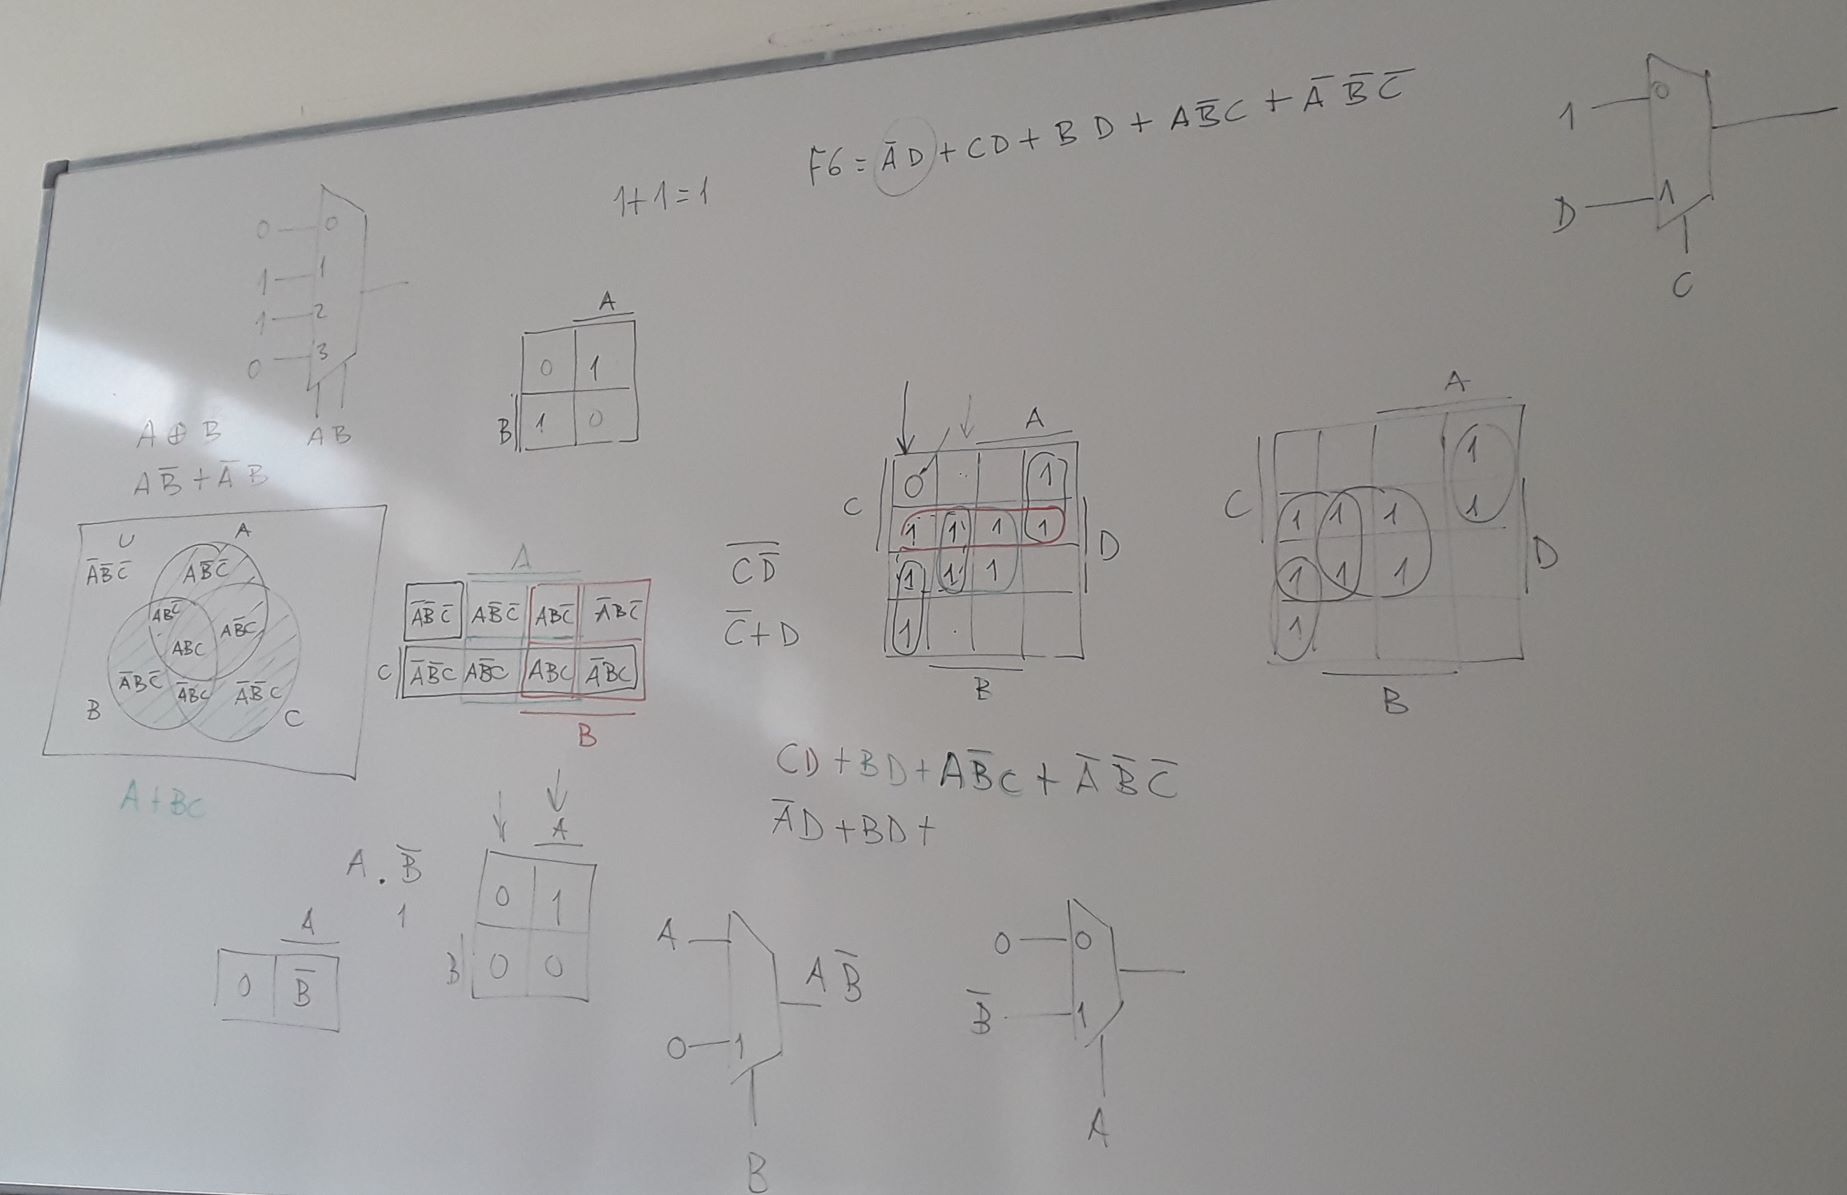 F6 = A̅D + CD + BD + AB̅C + A̅ B̅ C̅
1+1=1
0 0
1 1
1 2
0 3
A B
A ⊕ B
AB̅ + A̅B
A
0 1
B 1 0
1 0
D 1
C
U
A
A̅B̅C̅
AB̅C̅
ABC̅
AB̅C
ABC
A̅BC̅
A̅BC
A̅B̅C
B
C
A + BC
A
A̅B̅C̅ AB̅C̅ ABC̅ A̅BC̅
C A̅B̅C AB̅C ABC A̅BC
B
C̅D̅
C̅ + D
A
C 0 1
1 1 1 1 D
1 1 1
1
B
A
1
C 1 1 1 1
1 1 1 D
1
B
CD + BD + AB̅C + A̅ B̅ C̅
A̅D + BD +
A . B̅
1
A
0 B̅
A
0 1
B 0 0
A
0 1
B
A B̅
0 0
B̅ 1
A